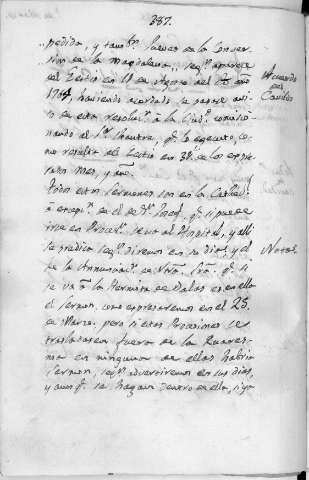 387.
pedida, y tamb.ⁿ Jueves de la Conver-
sion de la Magdalena, seg.ⁿ aparece
del Lectio en 11 de Agosto del año
1704, haviendo acordado se pasase avi-
so de esta resoluc.ⁿ à la Ciud.ᵈ comisio-
nando el S.ʳ Chantre, q.ᵉ lo egecuto, co-
mo resulta del Lectio en 30 de los expre-
sados mes, y año.
Acuerdo
del
Cavildo
Todos estos sermones son en la Cathed.ˡ
à excepc.ⁿ de el de S.ⁿ Josef, q.ᵉ si puede
irse en Proces.ⁿ se va al Hospital, y alli
se predica seg.ⁿ diremos en su dia; y el
de la Annunciac.ⁿ de Ntrâ. Srâ. q.ᵉ si
se va à la Hermita de Dalas es en ella
el sermon, como expresaremos en el 25
de Marzo. pero si estas Procesiones se
trasladasen fuera de la Quares-
ma en ninguna de ellas habria
sermon, seg.ⁿ advertiremos en sus dias,
y aunq.ᵉ se hagan dentro en ella, si ya
Nota.